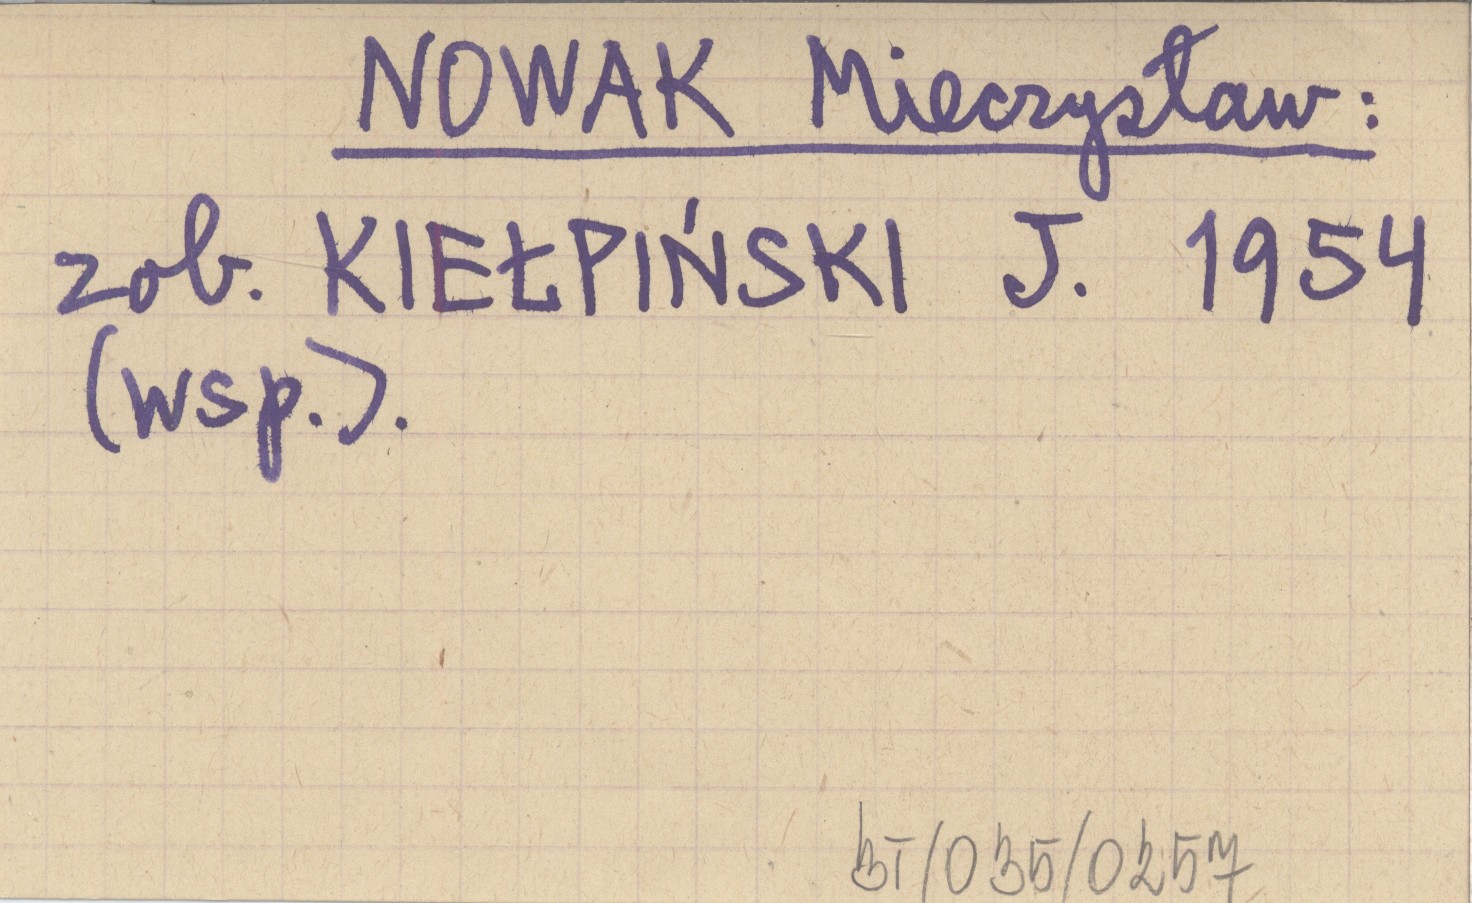 NOWAK Mieczysław:
zob. KIEŁPIŃSKI J. 1954
(wsp.).
BT/035/0257